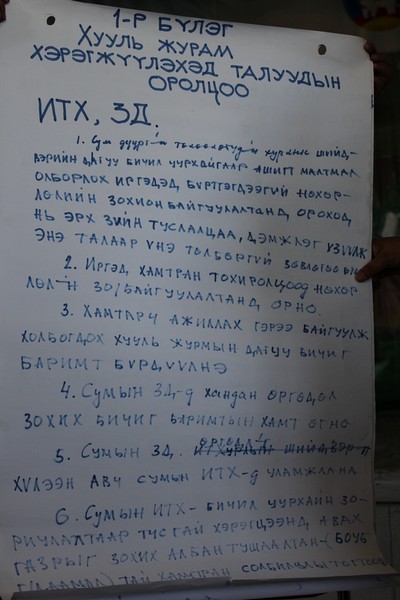 1-Р БҮЛЭГ
ХУУЛЬ ЖУРАМ
ХЭРЭГЖҮҮЛЭХЭД ТАЛУУДЫН
ОРОЛЦОО
ИТХ, ЗД.
1. Сум дүүргийн төлөөлөгчдийн хурлын шийд-
вэрийн дагуу бичил уурхайгаар ашигт малтмал
олборлох иргэдэд, бүртгэгдээгүй нөхөр-
лөлийн зохион байгуулалтанд ороход
нь эрх зүйн туслалцаа, дэмжлэг үзүүлж
энэ талаар үнэ төлбөргүй зөвлөгөө
2. Иргэд хамтран тохиролцоод нөхөр
лөл-н зо/байгуулалтанд орно.
3. Хамтарч ажиллах гэрээ байгуулж
холбогдох хууль журмын дагуу бичиг
баримт бүрдүүлнэ
4. Сумын ЗД-д хандан өргөдөл
зохих бичиг баримтын хамт өгнө
5. Сумын ЗД. өргөдлийг
хүлээн авч сумын ИТХ-д уламжлана
6. Сумын ИТХ- бичил уурхайн зо-
риулалтаар тусгай хэрэгцээнд авах
газрыг зохих албан тушаалтан- (БОУБ
тай хамтран